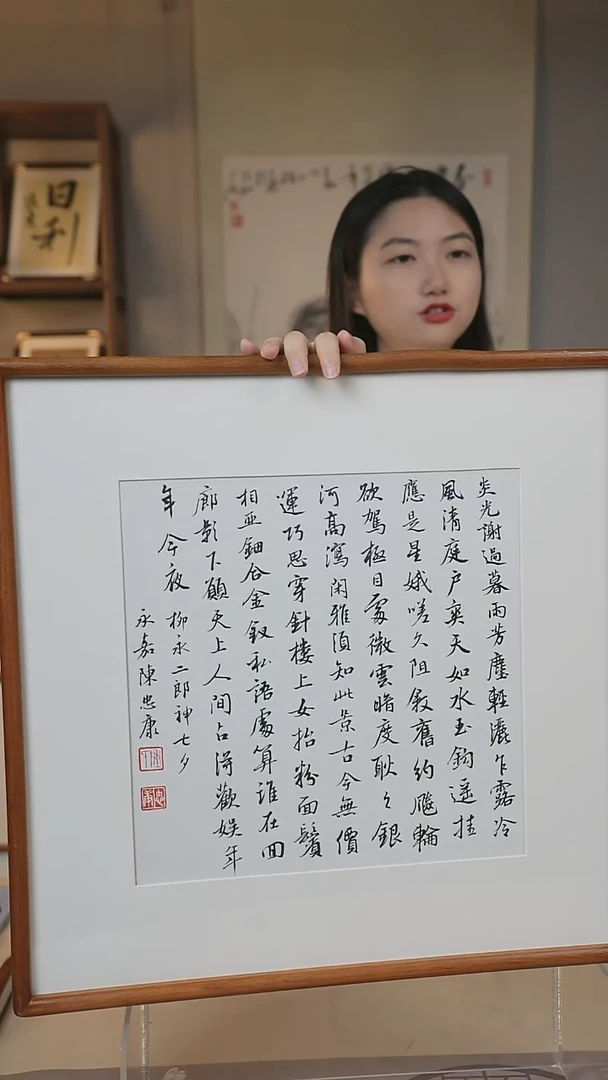 炎光謝過暮雨芳塵輕灑乍露冷
風清庭户爽天如水玉鈎遥挂
應是星娥嗟久阻敘舊約飈輪
欲駕極目處微雲暗度耿々銀
河高瀉閑雅須知此景古今無價
運巧思穿針樓上女抬粉面鬢
相亞鈿合金釵私語處算誰在回
廊影下願天上人間占得歡娱年
年今夜 柳永二郎神七夕
永嘉陳忠康
日利